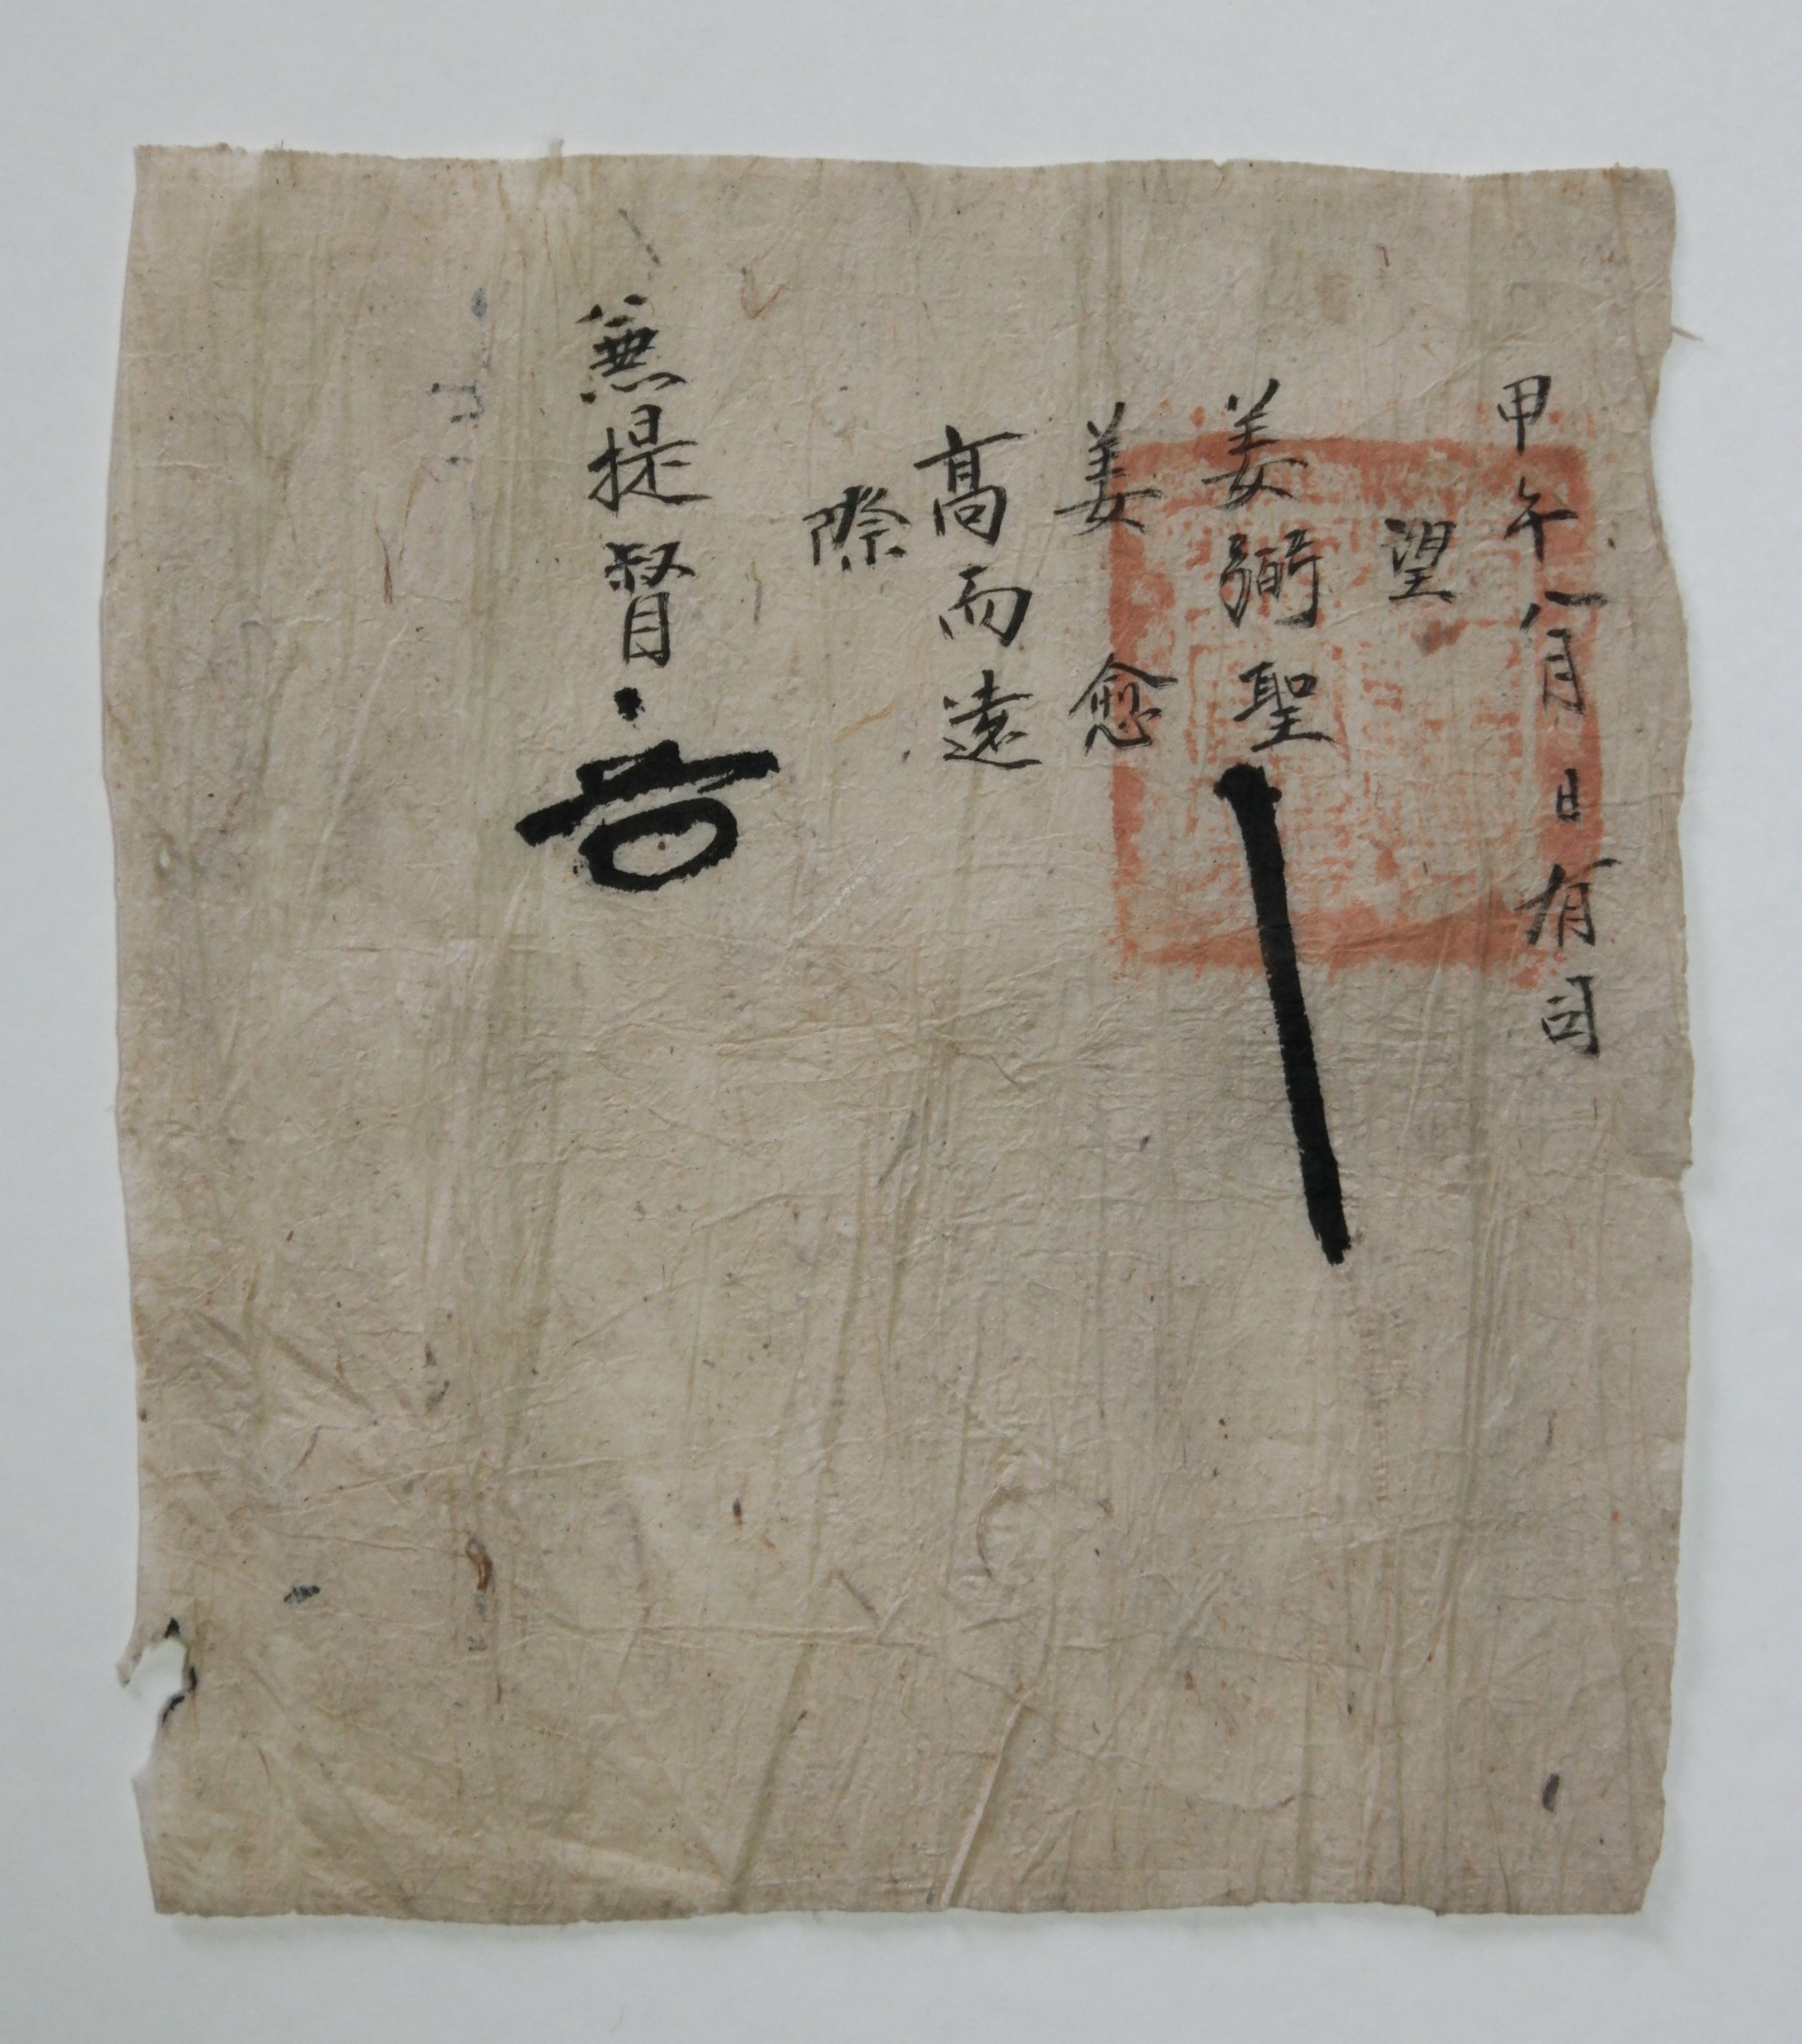 甲午八月 日 有司
望
姜彌聖
姜愈
高而遠
際
兼提督